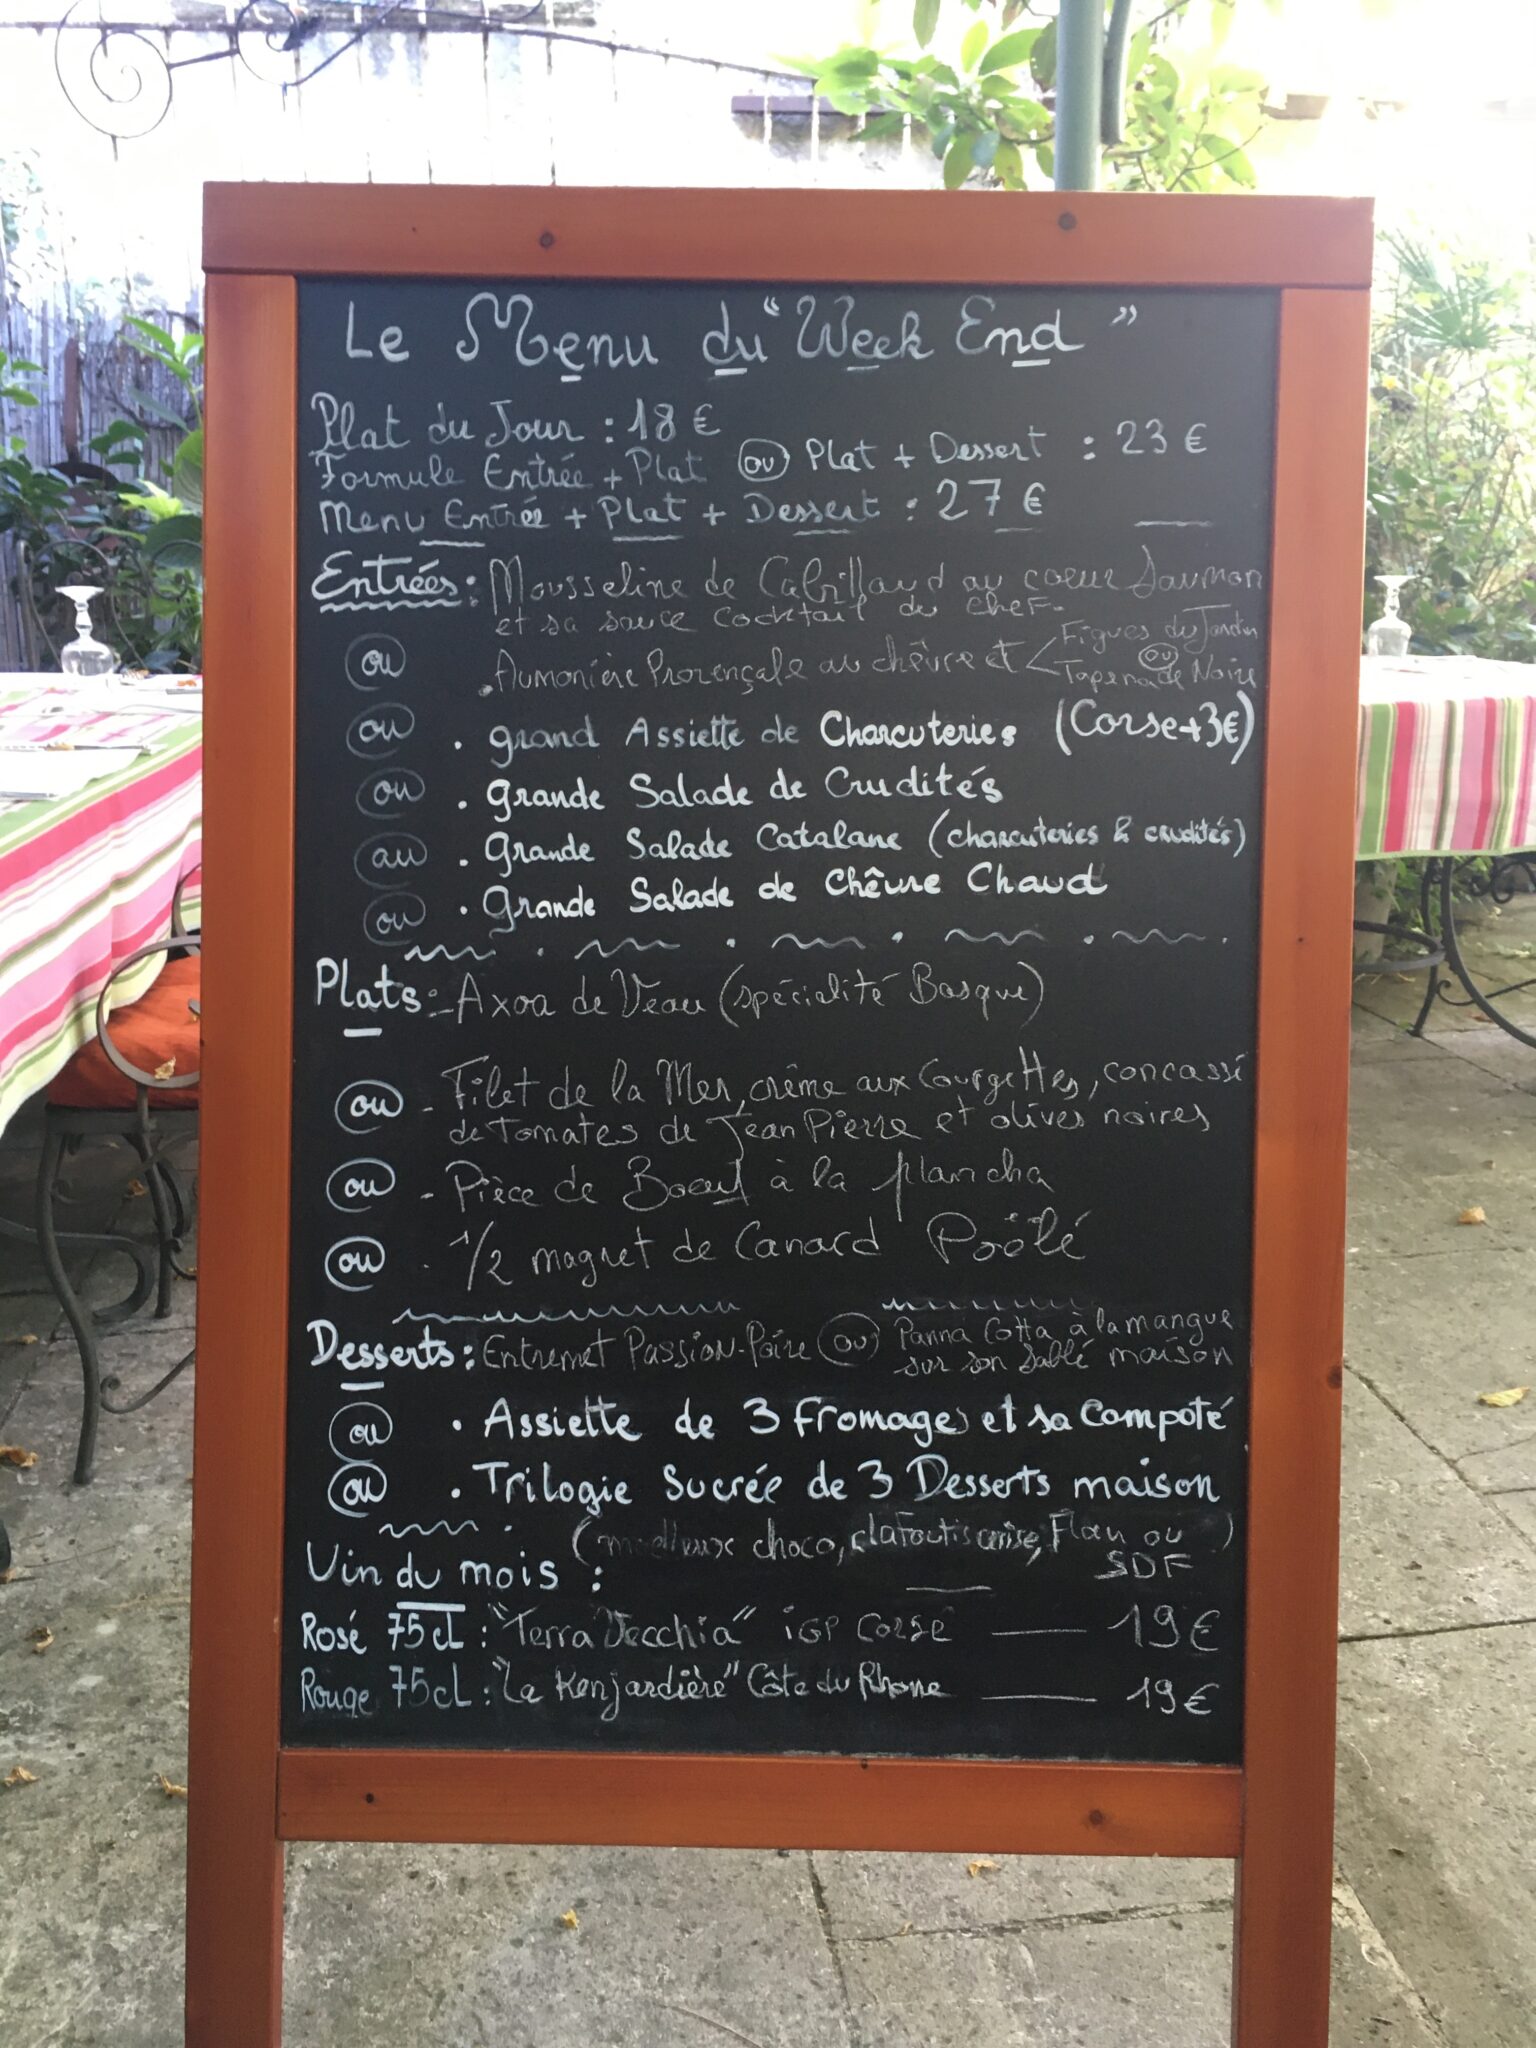 Le Menu du "Week End"
Plat du Jour : 18 €
Formule Entrée + Plat ou Plat + Dessert : 23 €
Menu Entrée + Plat + Dessert : 27 €
Entrées : Mousseline de Cabillaud au coeur Saumon
et sa sauce cocktail du chef.
ou . Aumonière Provençale au chèvre et < Figues du Jardin
ou
Tapenade Noire
ou . grand Assiette de Charcuteries (Corse+3€)
ou . Grande Salade de Crudités
ou . Grande Salade Catalane (charcuteries & crudités)
ou . Grande Salade de Chêvre Chaud
Plats : - Axoa de Veau (spécialité Basque)
ou - Filet de la Mer, crême aux Courgettes, concassé
de Tomates de Jean Pierre et olives noires
ou - Pièce de Boeuf à la plancha
ou - 1/2 magret de Canard Poêlé
Desserts : Entremet Passion-Poire ou Panna Cotta à la mangue
sur son Sablé maison
ou . Assiette de 3 Fromages et sa Compoté
ou . Trilogie Sucrée de 3 Desserts maison
(moelleux choco, clafoutis cerise, Flan ou )
SDF
Vin du mois :
Rosé 75cl : "Terra Vecchia" iGP Corse — 19 €
Rouge 75cL : "La Kenjardière" Côte du Rhone — 19 €